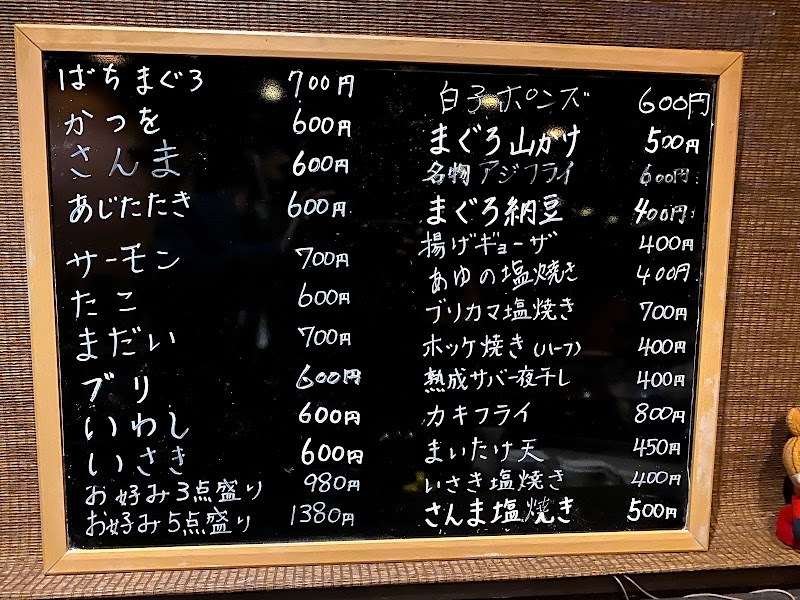 ばちまぐろ 700円
かつを 600円
さんま 600円
あじたたき 600円
サーモン 700円
たこ 600円
まだい 700円
ブリ 600円
いわし 600円
いさき 600円
お好み3点盛り 980円
お好み5点盛り 1380円
白子ポンズ 600円
まぐろ山かけ 500円
名物アジフライ 600円
まぐろ納豆 400円
揚げギョーザ 400円
あゆの塩焼き 400円
ブリカマ塩焼き 700円
ホッケ焼き(ハーフ) 400円
熟成サバ一夜干し 400円
カキフライ 800円
まいたけ天 450円
いさき塩焼き 400円
さんま塩焼き 500円